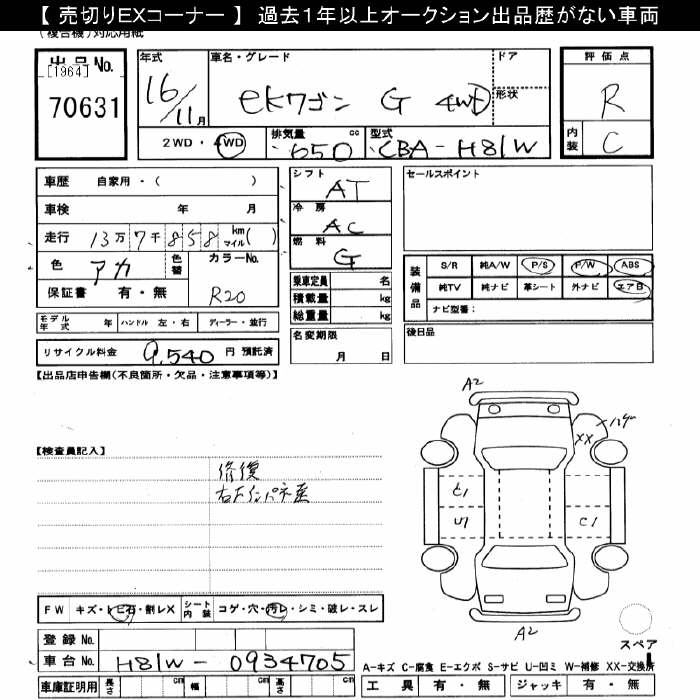 【 売切りEXコーナー 】 過去1年以上オークション出品歴がない車両
(複合機)対応用紙
出品No.
[1964]
70631
年式
16/11月
車名・グレード
eKワゴン G 4WD
ドア
形状
評価点
R
内装
C
2WD・4WD
排気量
650
cc
型式
CBA-H81W
車歴 自家用・( )
車検 年 月
走行 13万7千858 km マイル( )
色 アカ
色替
カラーNo.
R20
保証書 有・無
モデル年式 年 ハンドル 左・右 ディーラー・並行
リサイクル料金 9,540 円 預託済
シフト
AT
冷房
AC
燃料
G
乗車定員 名
積載量 kg
総重量 kg
名変期限
月 日
セールスポイント
装備品
S/R 純A/W P/S P/W ABS
純TV 純ナビ 革シート 外ナビ エアB
ナビ型番:
後日品
【出品店申告欄(不良箇所・欠品・注意事項等)】
【検査員記入】
修復
A2
XX
U1
C1
A2
スペア
FW キズ・トビ石・割レX
シート内装 コゲ・穴・汚レ・シミ・破レ・スレ
登録 No.
車台 No. H81W-0934705
車庫証明用 長さ cm 幅 cm 高さ cm
A-キズ C-腐食 E-エクボ S-サビ U-凹ミ W-補修 XX-交換済
工具 有・無 ジャッキ 有・無